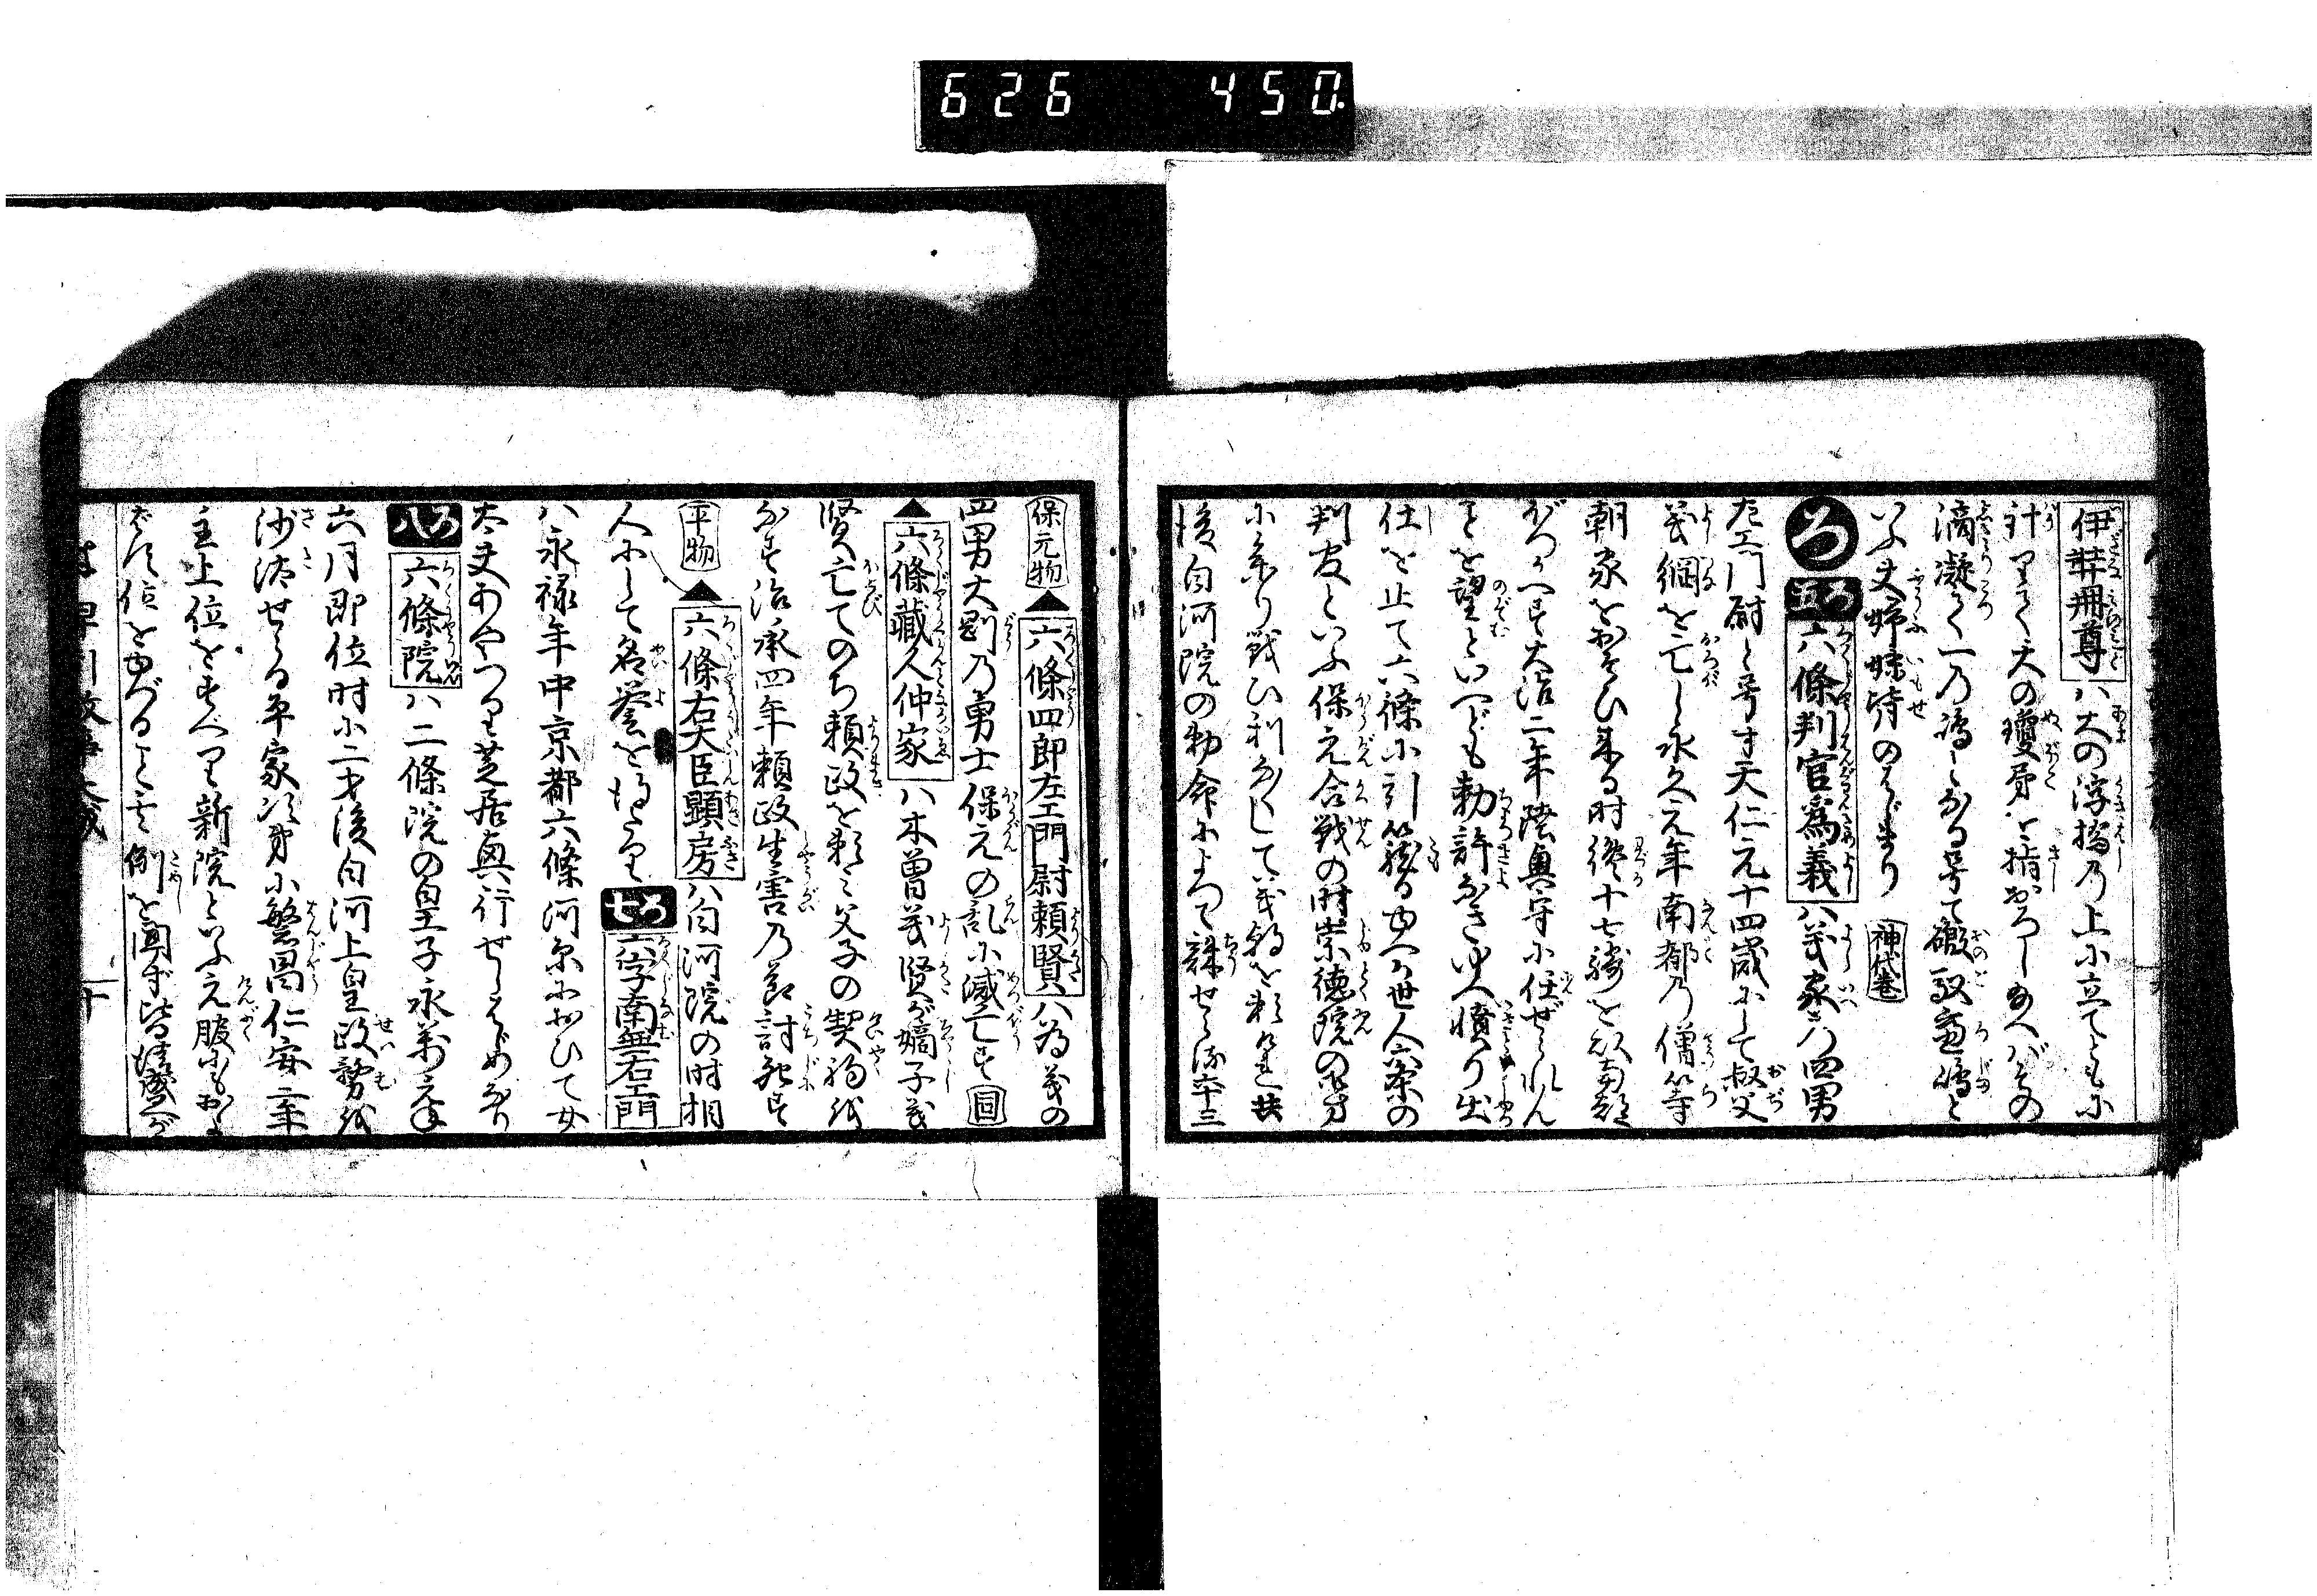 626 450
伊弉冊尊ハ天の浮橋乃上に立てともに
計りて天の瓊矛を指おろし給へバその
滴凝て一乃嶋となる号て磤馭盧嶋と
いふ夫婦妹背のはじまり 神代巻
ろ 六條判官為義ハ義家の四男
左エ門尉と号す天仁元十四歳にして叔父
義綱を亡し永久元年南都乃僧等
朝家をおそひ来る時終十七騎を以南都
大治二年陸奥守に任ぜられん
事を望といへども勅許なきゆへ憤り出
仕を止て六條に引籠るゆへに世人六条の
判官といふ保元合戦の時崇徳院の御方
に参り戦ひ利なくして義朝を頼
後白河院の勅命によつて誅せらる
保元物 六條四郎左エ門尉頼賢ハ為義の
四男大剛乃勇士保元の乱に滅亡す 同
六條蔵人仲家ハ木曽義賢が嫡子義
賢亡てのち頼政を頼ミ父子の契約を
なす治承四年頼政生害乃節討死す
平物 六條右大臣顕房ハ白河院の時相
人にして名誉を得たり 七ろ 六字南無右エ門
ハ永禄年中京都六條河原においひて女
太夫あやつり芝居興行せしはじめなり
八ろ 六條院ハ二條院の皇子永萬元年
六月即位时に二才後白河上皇政務を
沙汰せらる平家次第に繁昌仁安三年
主上位をすべり新院といふ元服にもおよ
ばず位をゆづること例を聞ず皆清盛が
十